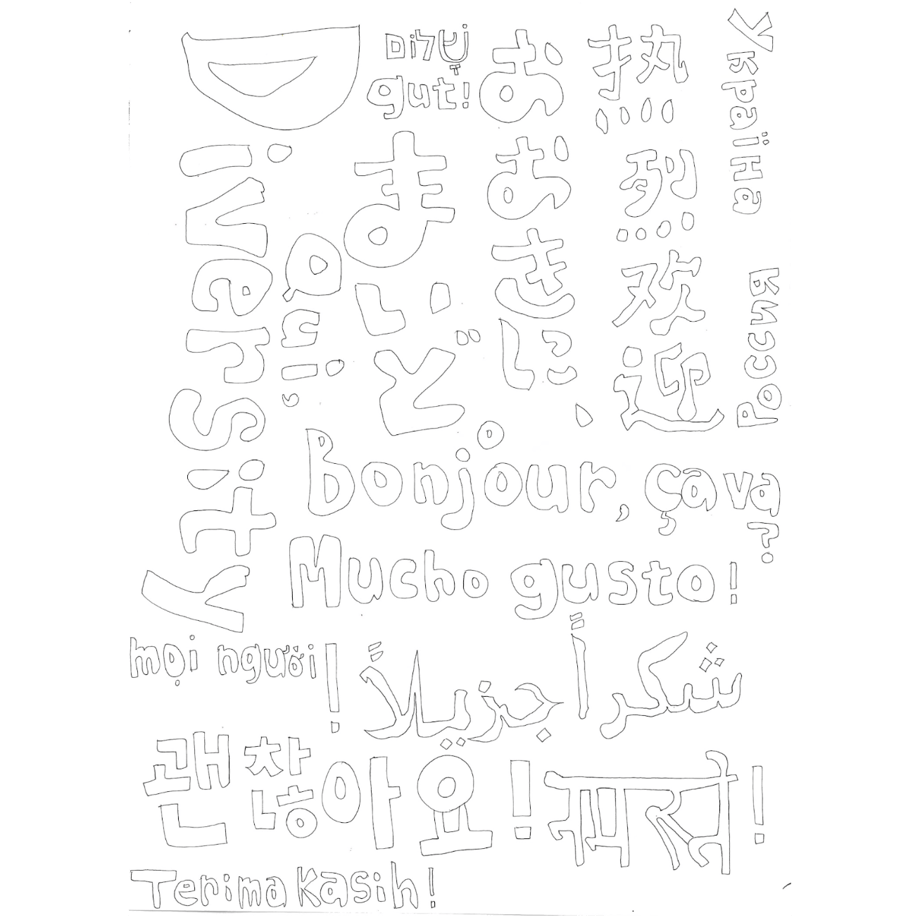 Diversity
Qui,
שָׁלוֹם
gut!
まいど
おおきに、
热烈欢迎
Україна
Россия
Bonjour, ça va?
Mucho gusto!
mọi người!
شكراً جزيلاً
괜찮아요!
नमस्ते!
Terima kasih!